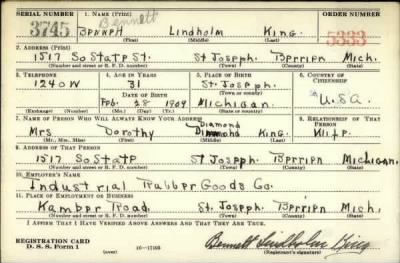 SERIAL NUMBER 1. NAME (Print) ORDER NUMBER
Bennett
3745 Bennett Lindholm King. 5333
(First) (Middle) (Last)
2. ADDRESS (Print)
1517 So State St. St Joseph. Berrien Mich.
(Number and street or R. F. D. number) (Town) (County) (State)
3. TELEPHONE 4. AGE IN YEARS 5. PLACE OF BIRTH 6. COUNTRY OF CITIZENSHIP
1240W 31 St. Joseph.
DATE OF BIRTH (Town or county)
Feb. 28 1909 Michigan U.S.A.
(Exchange) (Number) (Mo.) (Day) (Yr.) (State or country)
7. NAME OF PERSON WHO WILL ALWAYS KNOW YOUR ADDRESS 8. RELATIONSHIP OF THAT PERSON
Diamond
Mrs Dorothy Diamond King. Wife
(Mr., Mrs., Miss) (First) (Middle) (Last)
9. ADDRESS OF THAT PERSON
1517 So State St Joseph. Berrien Michigan.
(Number and street or R. F. D. number) (Town) (County) (State)
10. EMPLOYER'S NAME
Industrial Rubber Goods Co.
11. PLACE OF EMPLOYMENT OR BUSINESS
Kamber Road. St. Joseph. Berrien Mich.
(Number and street or R. F. D. number) (Town) (County) (State)
I AFFIRM THAT I HAVE VERIFIED ABOVE ANSWERS AND THAT THEY ARE TRUE.
REGISTRATION CARD
D. S. S. Form 1 16—17105 Bennett Lindholm King
(Registrant's signature)